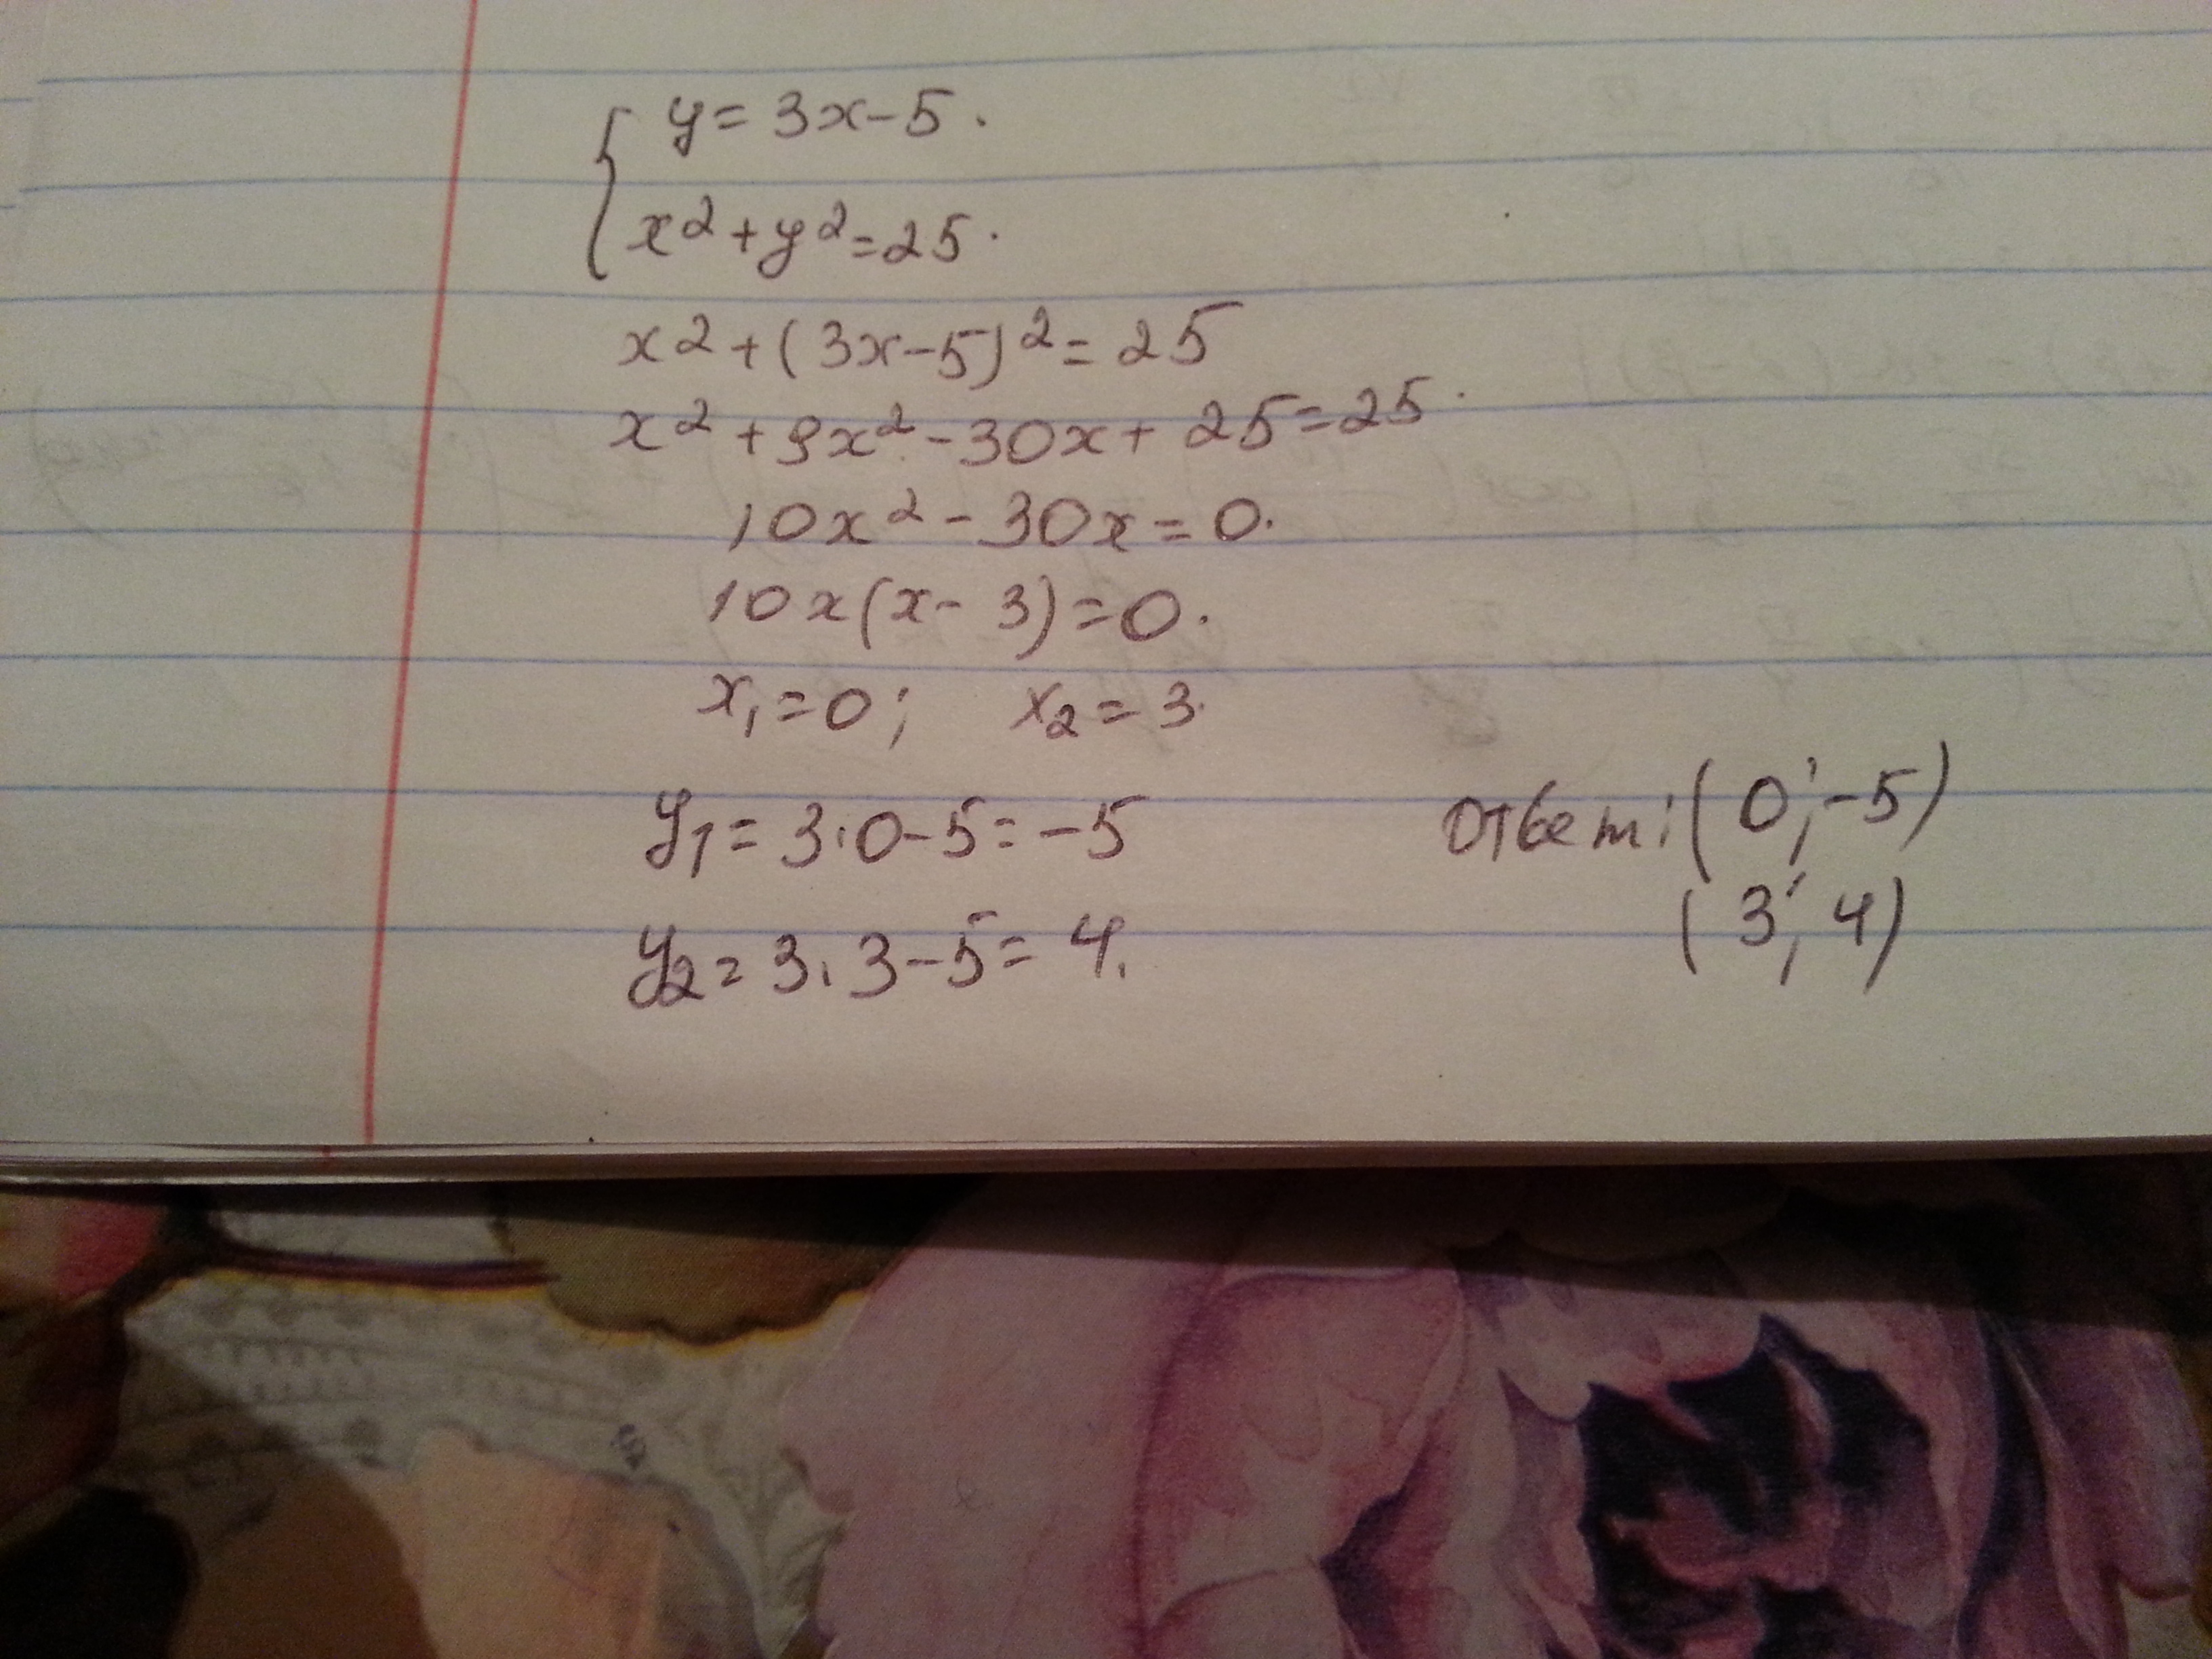 { y = 3x - 5.
x² + y² = 25.
x² + (3x - 5)² = 25
x² + 9x² - 30x + 25 = 25.
10x² - 30x = 0.
10x(x - 3) = 0.
x₁ = 0; x₂ = 3.
y₁ = 3·0 - 5 = -5
Ответ: (0; -5)
(3; 4)
y₂ = 3·3 - 5 = 4.